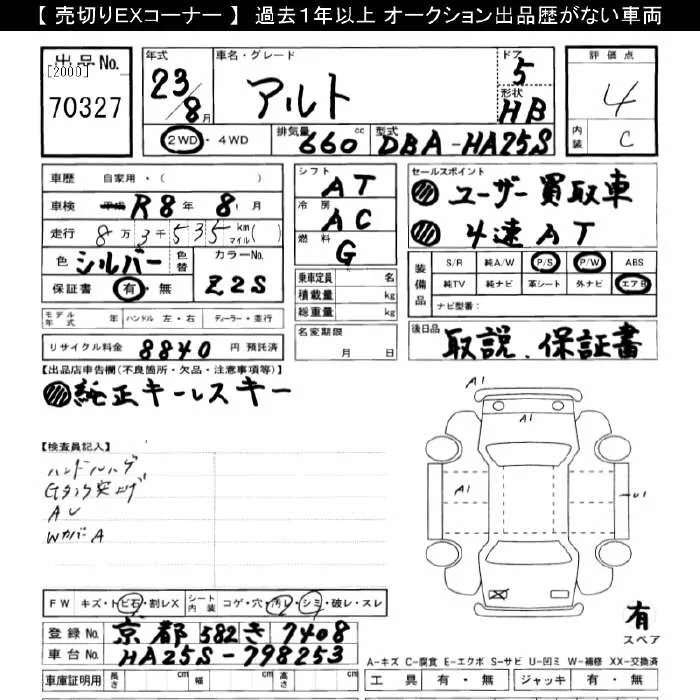 【 売切りEXコーナー 】 過去1年以上 オークション出品歴がない車両
出品No.
[2000]
70327
年式 23/8月
車名・グレード アルト
ドア 5
形状 HB
評価点 4
内装 C
2WD・4WD
排気量 660 cc
型式 DBA-HA25S
車歴 自家用・( )
車検 平成 R8年 8月
走行 8万3千535km マイル( )
色 シルバー 色替
カラーNo. Z2S
保証書 有・無
モデル年式 年 ハンドル 左・右 ディーラー・並行
リサイクル料金 8840 円 預託済
シフト AT
冷房 AC
燃料 G
乗車定員 名
積載量 kg
総重量 kg
名変期限 月 日
セールスポイント
ユーザー買取車
4速AT
装備品
S/R 純A/W P/S P/W ABS
純TV 純ナビ 革シート 外ナビ エアB
ナビ型番：
後日品 取説、保証書
【出品店申告欄(不良箇所・欠品・注意事項等)】
純正キーレスキー
【検査員記入】
ハンドルハゲ
Gタンク突上げ
AU
WカバーA
A1
A1
A1
U1
FW キズ・トビ石・割レX
シート内装 コゲ・穴・汚レ・シミ・破レ・スレ
登録No. 京都 582 き 7408
車台No. HA25S-798253
車庫証明用 長さ cm 幅 cm 高さ cm
有
スペア
A-キズ C-腐食 E-エクボ S-サビ U-凹ミ W-補修 XX-交換済
工具 有・無 ジャッキ 有・無